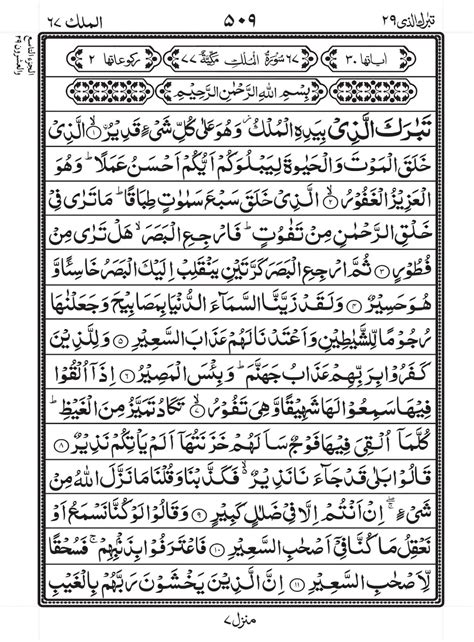 تبٰرك الذی ٢٩
٥٠٩
الملك ٦٧
الجزء التاسع والعشرون ٢٩
اٰیاتها ٣٠
٦٧ سُوْرَةُ الْمُلْكِ مَكِّیَّةٌ ٧٧
رکوعاتها ٢
بِسْمِ اللّٰهِ الرَّحْمٰنِ الرَّحِیْمِ
تَبٰرَكَ الَّذِیْ بِیَدِهِ الْمُلْكُ ؗ وَ هُوَ عَلٰی كُلِّ شَیْءٍ قَدِیْرُ ۙ﴿١﴾ الَّذِیْ
خَلَقَ الْمَوْتَ وَ الْحَیٰوةَ لِیَبْلُوَكُمْ اَیُّكُمْ اَحْسَنُ عَمَلًا ؕ وَ هُوَ
الْعَزِیْزُ الْغَفُوْرُ ۙ﴿٢﴾ الَّذِیْ خَلَقَ سَبْعَ سَمٰوٰتٍ طِبَاقًا ؕ مَا تَرٰی فِیْ
خَلْقِ الرَّحْمٰنِ مِنْ تَفٰوُتٍ ؕ فَارْجِعِ الْبَصَرَ ۙ هَلْ تَرٰی مِنْ
فُطُوْرٍ ﴿٣﴾ ثُمَّ ارْجِعِ الْبَصَرَ كَرَّتَیْنِ یَنْقَلِبْ اِلَیْكَ الْبَصَرُ خَاسِئًا وَّ
هُوَ حَسِیْرٌ ﴿٤﴾ وَ لَقَدْ زَیَّنَّا السَّمَآءَ الدُّنْیَا بِمَصَابِیْحَ وَ جَعَلْنٰهَا
رُجُوْمًا لِّلشَّیٰطِیْنِ وَ اَعْتَدْنَا لَهُمْ عَذَابَ السَّعِیْرِ ﴿٥﴾ وَ لِلَّذِیْنَ
كَفَرُوْا بِرَبِّهِمْ عَذَابُ جَهَنَّمَ ؕ وَ بِئْسَ الْمَصِیْرُ ﴿٦﴾ اِذَاۤ اُلْقُوْا
فِیْهَا سَمِعُوْا لَهَا شَهِیْقًا وَّ هِیَ تَفُوْرُ ۙ﴿٧﴾ تَكَادُ تَمَیَّزُ مِنَ الْغَیْظِ ؕ
كُلَّمَاۤ اُلْقِیَ فِیْهَا فَوْجٌ سَاَلَهُمْ خَزَنَتُهَاۤ اَلَمْ یَاْتِكُمْ نَذِیْرٌ ﴿٨﴾
قَالُوْا بَلٰی قَدْ جَآءَنَا نَذِیْرٌ ۙ۬ فَكَذَّبْنَا وَ قُلْنَا مَا نَزَّلَ اللّٰهُ مِنْ
شَیْءٍ ۖۚ اِنْ اَنْتُمْ اِلَّا فِیْ ضَلٰلٍ كَبِیْرٍ ﴿٩﴾ وَ قَالُوْا لَوْ كُنَّا نَسْمَعُ اَوْ
نَعْقِلُ مَا كُنَّا فِیْۤ اَصْحٰبِ السَّعِیْرِ ﴿١٠﴾ فَاعْتَرَفُوْا بِذَنْۢبِهِمْ ۚ فَسُحْقًا
لِّاَصْحٰبِ السَّعِیْرِ ﴿١١﴾ اِنَّ الَّذِیْنَ یَخْشَوْنَ رَبَّهُمْ بِالْغَیْبِ
منزل ٧